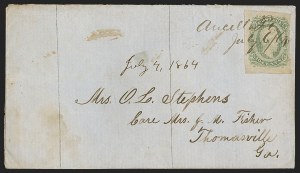 Aucilla
July 6/64
July 4, 1864
Mrs. O. L. Stephens
Care Mrs. J. M. Fisher
Thomasville
Ga.